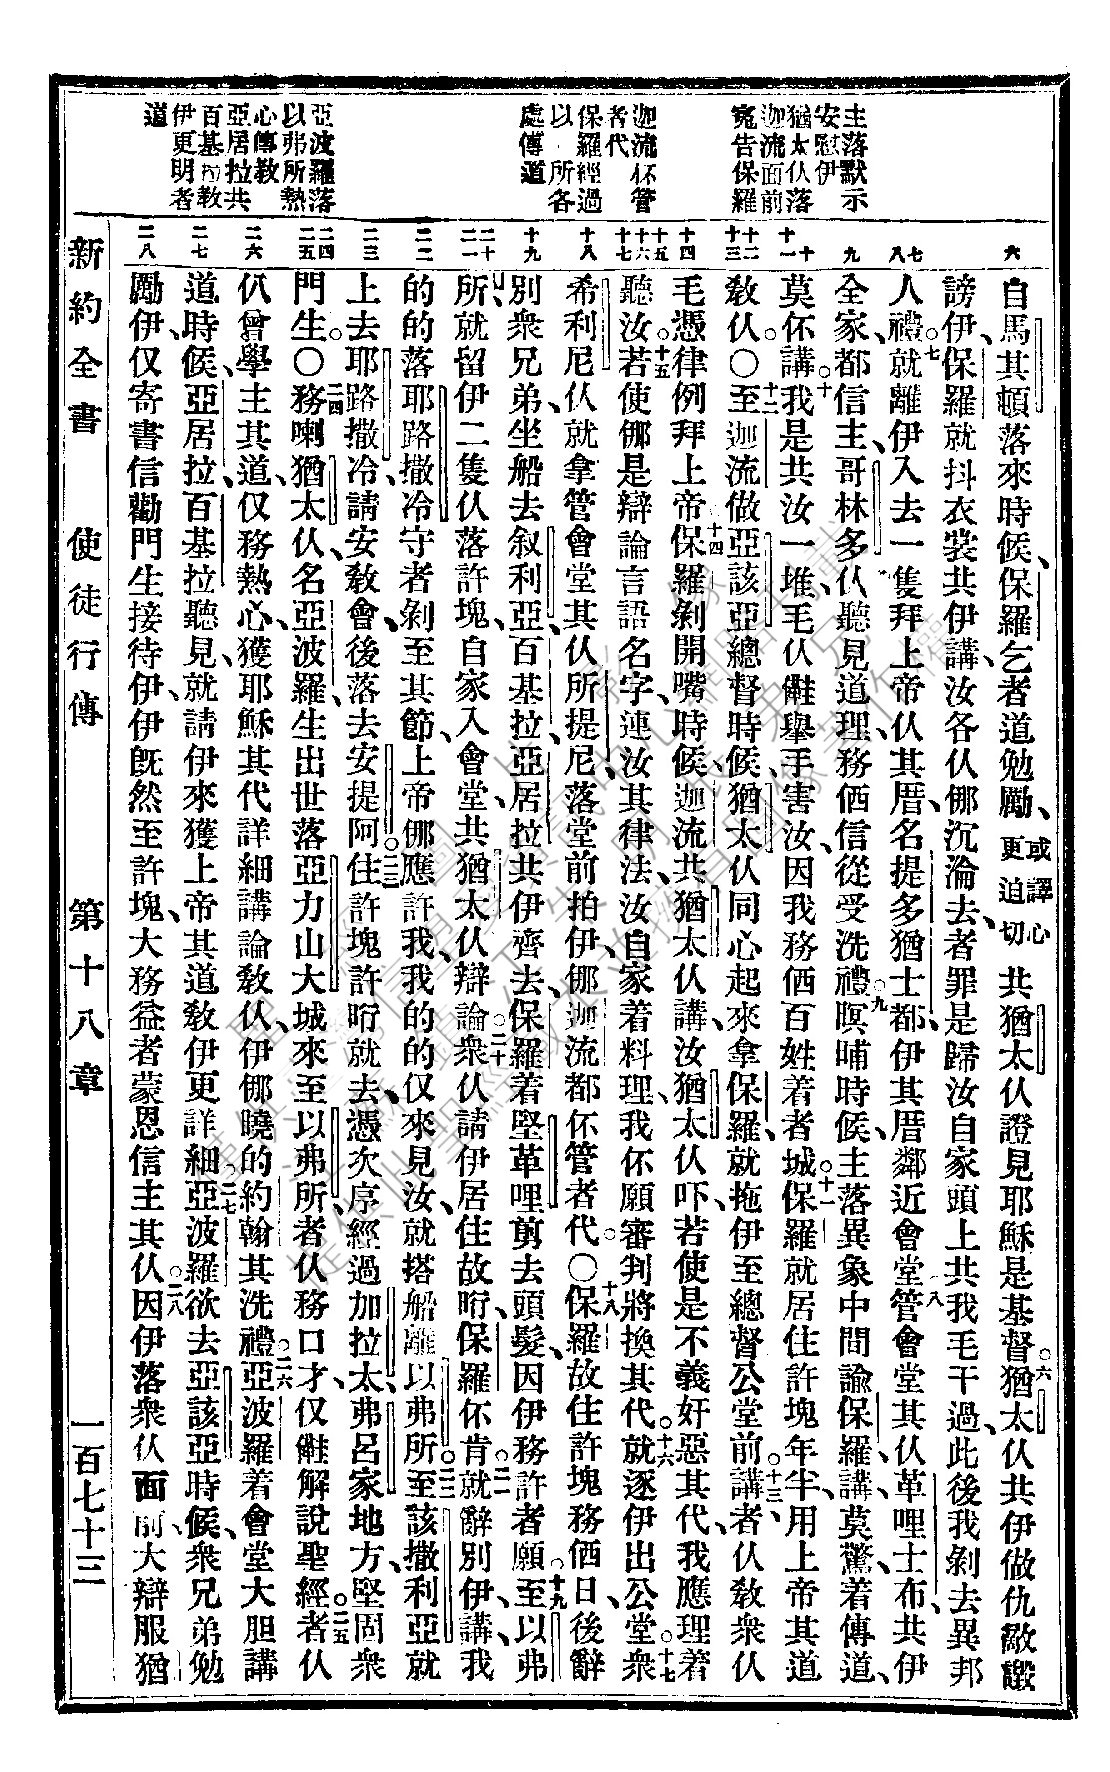 主落默示
安慰伊
猶太仫落
迦流面前
寃告保羅
迦流伓管
者代
保羅經過
以 所各
處傳道
亞波羅落
以弗所熱
心傳教
亞居拉共
百基拉教
伊更明者
道
六
七
八
九
十
十一
十二
十三
十四
十五
十六
十七
十八
十九
二十
二一
二二
二三
二四
二五
二六
二七
二八
自馬其頓落來時候、保羅乞者道勉勵、或譯心更迫切共猶太仫證見耶穌是基督○六猶太仫共伊做仇敵譭
謗伊、保羅就抖衣裳共伊講、汝各仫㑚沉淪去、者罪是歸汝自家頭上共我毛干過、此後我剝去異邦
人禮○七就離伊入去一隻拜上帝仫其厝、名提多猶士都、伊其厝鄰近會堂○八管會堂其仫革哩士布、共伊
全家都信主、哥林多仫聽見道理、務俖信從受洗禮○九暝晡時候、主落異象中間諭保羅講、莫驚着傳道、
莫伓講○十我是共汝一堆、毛仫㑛舉手害汝、因我務俖百姓着者城○十一保羅就居住許塊年半、用上帝其道
教仫○十二至迦流做亞該亞總督時候、猶太仫同心起來拿保羅、就拖伊至總督公堂前講○十三者仫教衆仫
毛憑律例拜上帝○十四保羅剝開嘴時候、迦流共猶太仫講、汝猶太仫吓、若使是不義奸惡其代、我應理着
聽汝○十五若使㑚是辯論言語名字、連汝其律法、汝自家着料理、我伓願審判將換其代○十六就逐伊出公堂○十七衆
希利尼仫就拿管會堂其仫所提尼、落堂前拍伊、㑚迦流都伓管者代○十八保羅故住許塊務俖日、後辭
別衆兄弟、坐船去叙利亞、百基拉、亞居拉共伊齊去、保羅着堅革哩剪去頭髮、因伊務許者願○十九至以弗
所、就留伊二隻仫落許塊、自家入會堂、共猶太仫辯論○二十衆仫請伊居住故𣍐、保羅伓肯○二一就辭別伊、講我
的的落耶路撒冷守者剝至其節、上帝㑚應許我、我的的仅來見汝、就搭船離以弗所○二二至該撒利亞就
上去耶路撒冷、請安教會、後落去安提阿○二三住許塊許𣍐就去、憑次序經過加拉太、弗呂家地方、堅固衆
門生○二四務喇猶太仫、名亞波羅、生出世落亞力山大城、來至以弗所、者仫務口才、仅㑛解說聖經○二五者仫
仈曾學主其道、仅務熱心、獲耶穌其代詳細講論教仫、伊㑚曉的約翰其洗禮○二六亞波羅着會堂大胆講
道時候、亞居拉、百基拉聽見、就請伊來、獲上帝其道教伊更詳細○二七亞波羅欲去亞該亞時候、衆兄弟勉
勵伊、仅寄書信勸門生接待伊、伊旣然至許塊、大務益者蒙恩信主其仫○二八因伊落衆仫面前、大辯服猶
新約全書　使徒行傳　第十八章　一百七十三